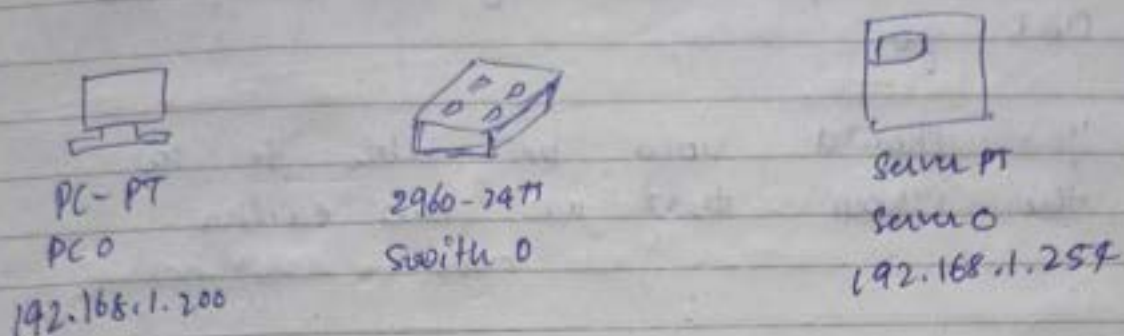 PC-PT
PC 0
192.168.1.200
2960-24TT
Swoith 0
Server PT
Server 0
192.168.1.254